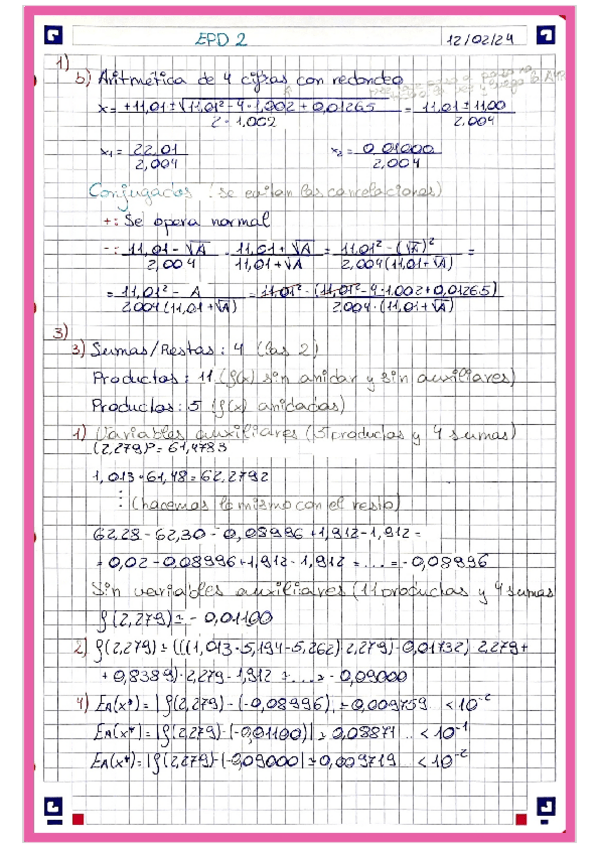 EPD 2
12/02/24
1)
b) Aritmética de 4 cifras con redondeo
x = +11,01 ± √(11,01² - 4·1,002 + 0,01265) / 2·1,002 = 11,01 ± 11,00 / 2,004
x₁ = 22,01 / 2,004    x₂ = 0,01000 / 2,004
Conjugados (se evitan las cancelaciones)
+: Se opera normal
-: 11,01 - √A / 2,004 · 11,01 + √A / 11,01 + √A = 11,01² - (√A)² / 2,004(11,01 + √A) =
= 11,01² - A / 2,004(11,01 + √A) = 11,01² - (11,01² - 4·1,002 + 0,01265) / 2,004·(11,01 + √A)
3)
3) Sumas/Restas: 4 (las 2)
Productos: 11 (f(x) sin anidar y sin auxiliares)
Productos: 5 (f(x) anidadas)
1) Variables auxiliares (5 productos y 4 sumas)
(2,279)⁵ = 61,4783
1,013·61,48 = 62,2792
⋮ (hacemos lo mismo con el resto)
62,28 - 62,30 - 0,08996 + 1,912 - 1,912 =
= 0,02 - 0,08996 + 1,912 - 1,912 = ... = -0,08996
Sin variables auxiliares (11 productos y 4 sumas
f(2,279) = -0,01100
2) f(2,279) = (((1,013·5,194 - 5,262) 2,279) - 0,01732) 2,279 +
+ 0,8389)·2,279 - 1,912 = ... = -0,09000
4) EA(x*) = |f(2,279) - (-0,08996)| = 0,009759 < 10⁻²
EA(x*) = |f(2,279) - (-0,01100)| = 0,08871 < 10⁻¹
EA(x*) = |f(2,279) - (-0,09000)| = 0,009719 < 10⁻²